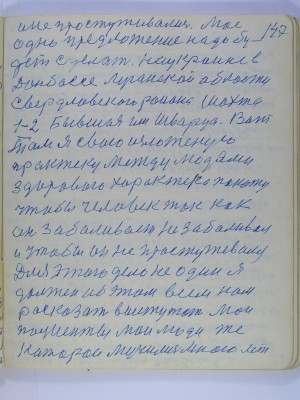 и не простуживался. Мое 147
одно предложение надо бу
дет сделат. На украине в
Донбассе Луганской области
Свердловского района Шахта
1-2 Бывшая им Шварца. Вот
Там я свого изложеную
практеку между людями
здорового характера
чтобы человек так как
он заболивает не заболивал
и чтобы он не простуживалу
Для этого дело не один я
должен об этом всем нам
росказат в институт мои
пациенты мои люди же
Которои мучились много лет